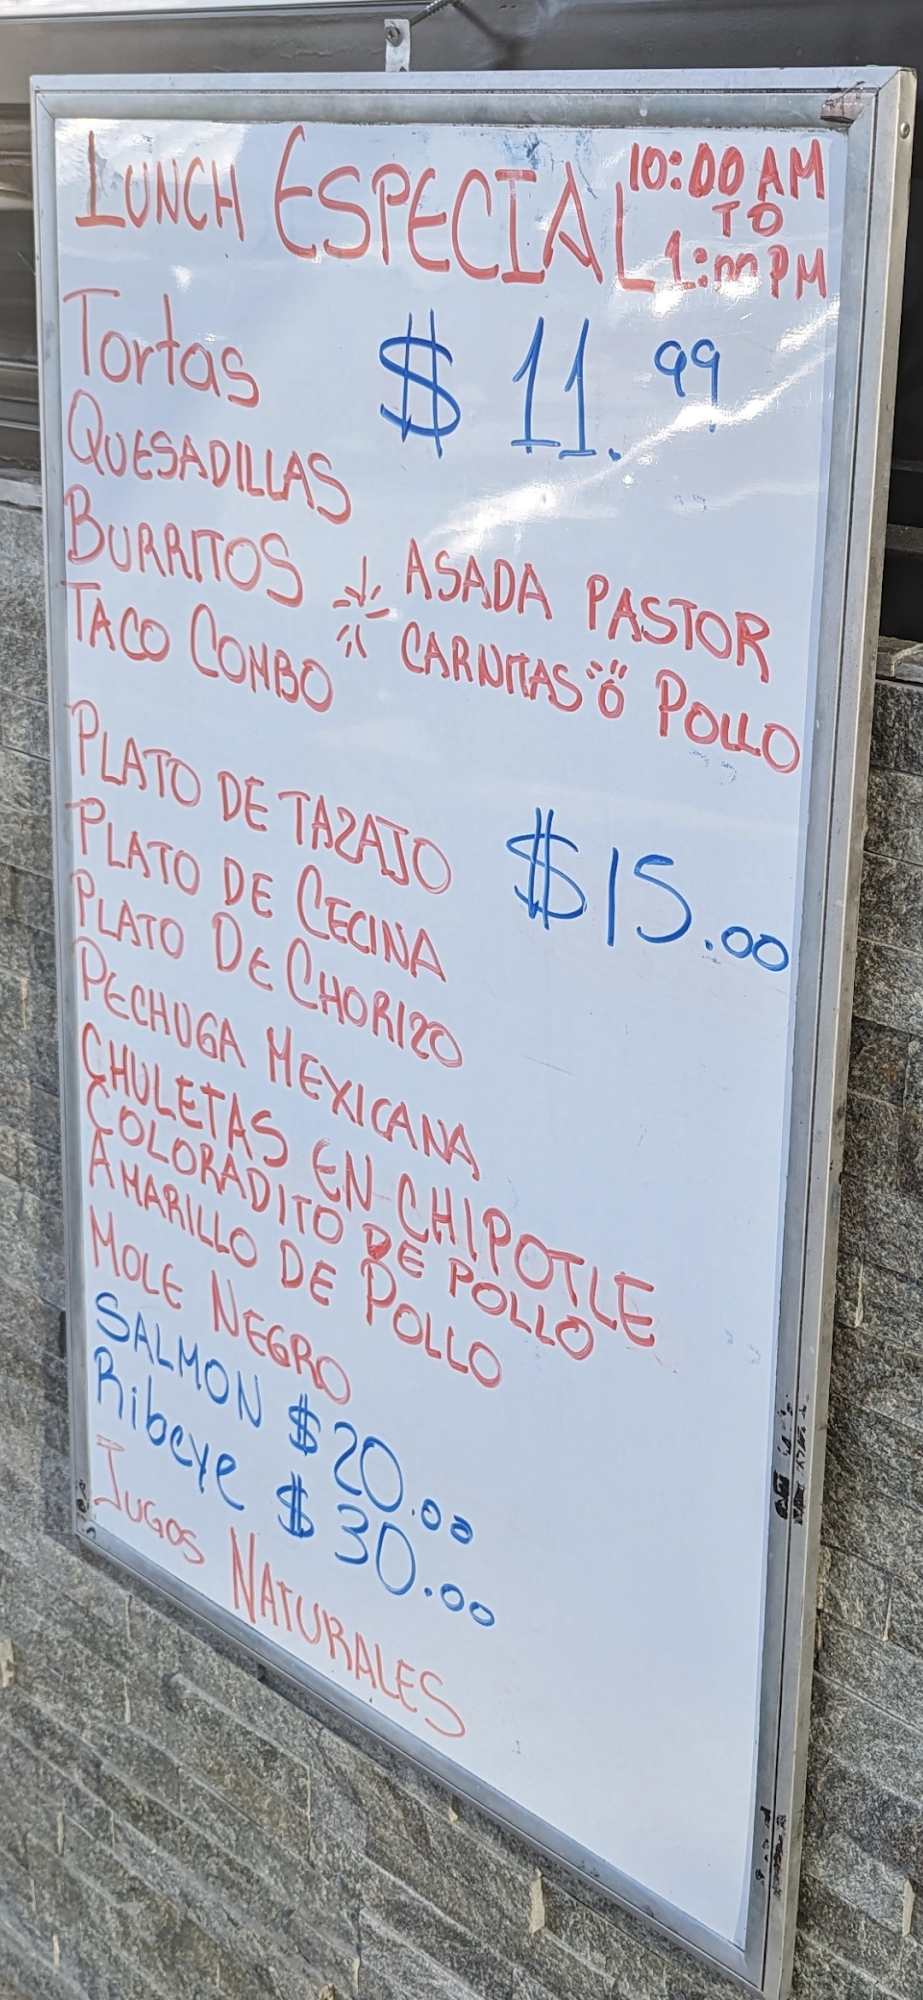 LUNCH ESPECIAL
10:00 AM
TO
1:00 PM
Tortas $11.99
QUESADILLAS
BURRITOS
TACO COMBO
ASADA PASTOR
CARNITAS Ó POLLO
PLATO DE TAZAJO $15.00
PLATO DE CECINA
PLATO DE CHORIZO
PECHUGA MEXICANA
CHULETAS EN CHIPOTLE
COLORADITO DE POLLO
AMARILLO DE POLLO
MOLE NEGRO
SALMON $20.00
Ribeye $30.00
JUGOS NATURALES